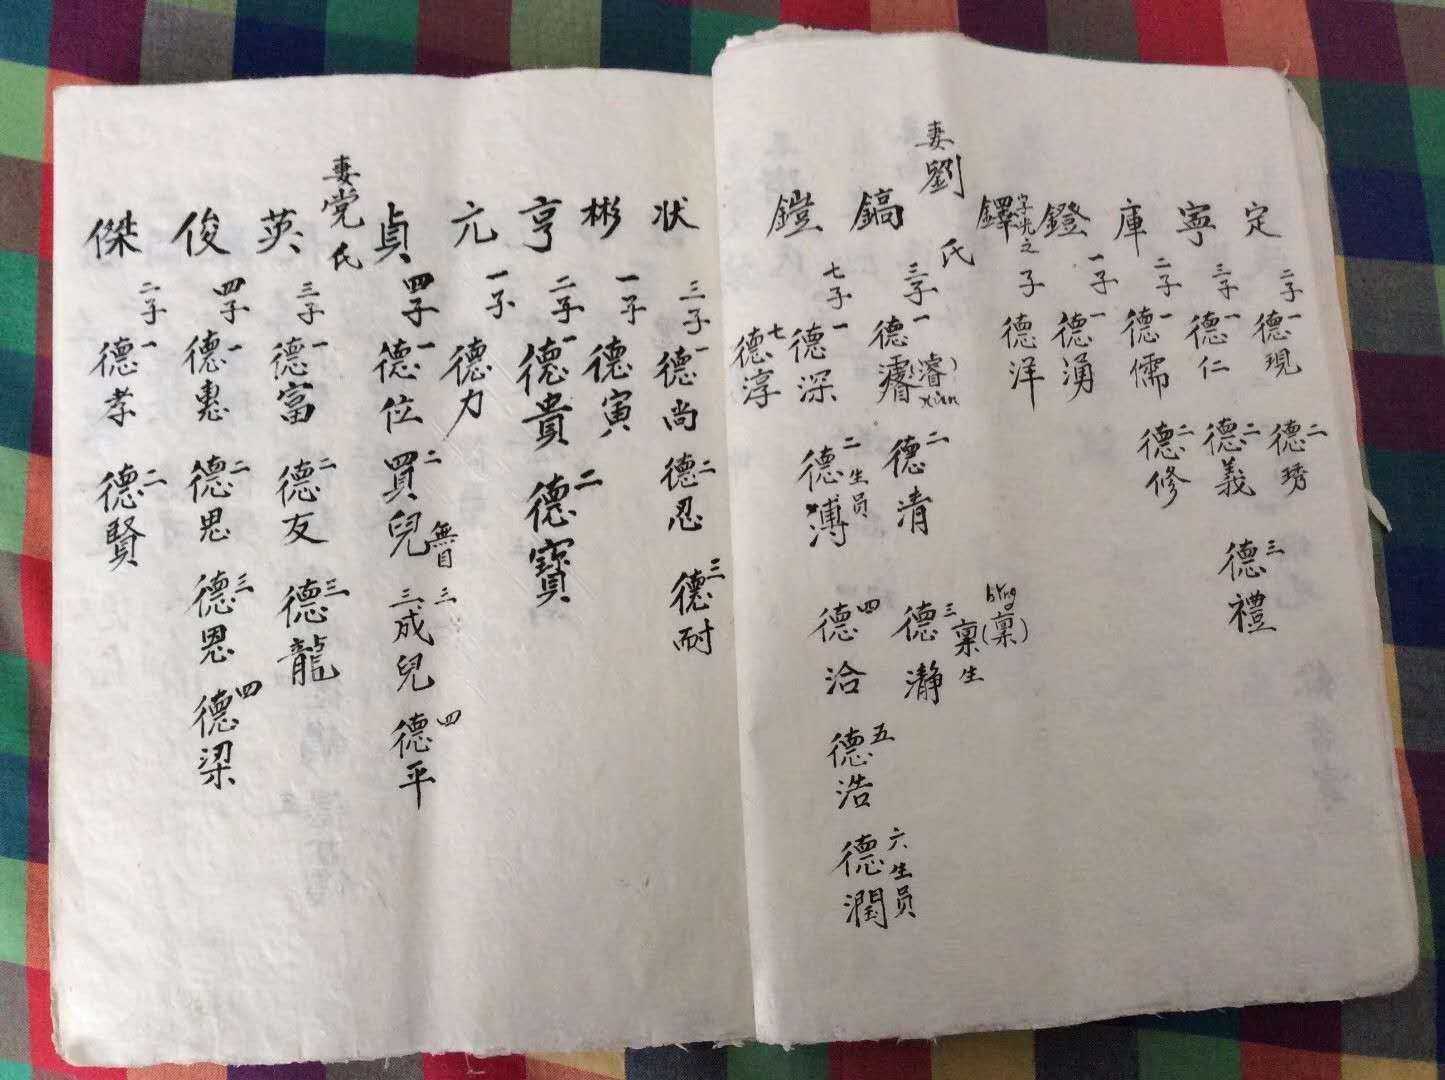 定 二子 一德現 二德琇
寧 三子 一德仁 二德義 三德禮
庫 二子 一德儒 二德修
鐙 一子 一德湧
鐸 字 之 子 德洋
妻劉氏
鎬 三子 一德濬(濬)xùn 二德清 三德瀞 稟生(稟)bǐng
鎧 七子 一德深 二德溥 生员 四德洽 五德浩 六德潤 生员
七德淳
状 三子 一德尚 二德忍 三德耐
彬 一子 德寅
亨 二子 一德貴 二德寶
元 一子 德力
貞 四子 一德位 二買兒 無目 三三成兒 四德平
妻党氏
英 三子 一德富 二德友 三德龍
俊 四子 一德惠 二德思 三德恩 四德梁
傑 二子 一德孝 二德賢